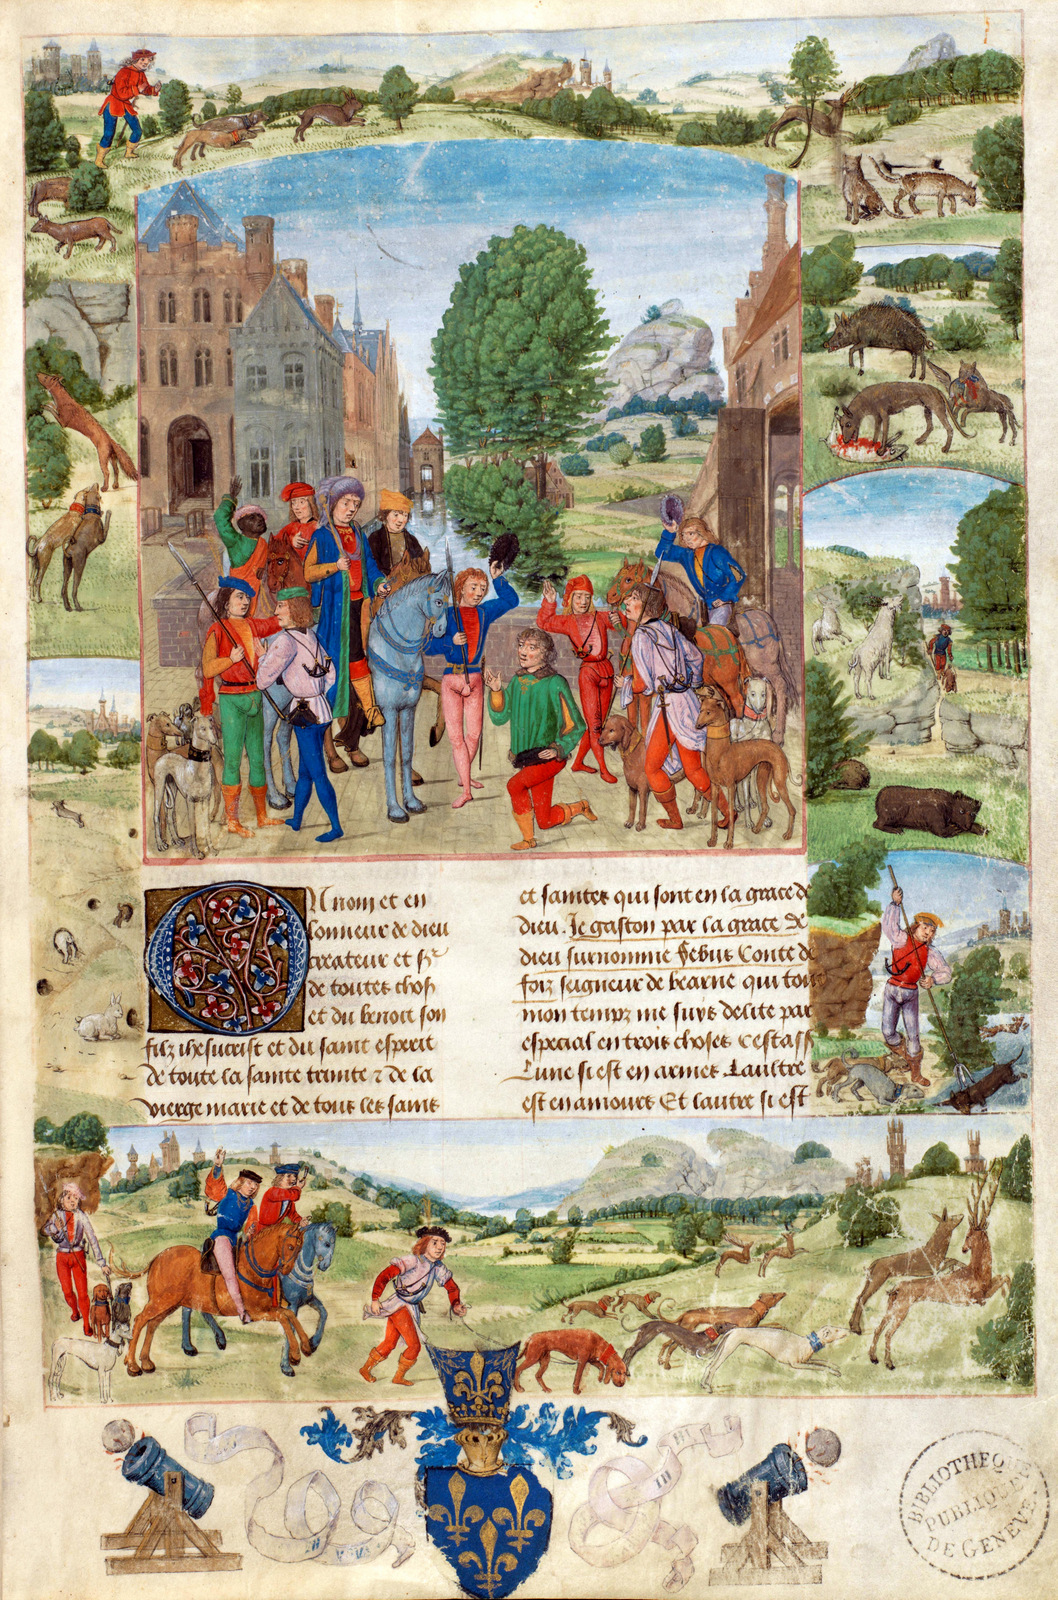 U nom et en
lonneur de dieu
createur et sr̃
de toutes chos
et du benoit son
filz ihesucrist et du saint esperit
de toute la sainte trinite ⁊ de la
vierge marie et de tous les sains
et saintes qui sont en la grace de
dieu. Je gaston par la grace de
dieu surnomme febus Conte de
foiz seigneur de bearne qui tout
mon temps me suys delite par
especial en trois choses Cest ass
Lune si est en armes Laultre
est en amours Et lautre si est
BIBLIOTHEQUE
PUBLIQUE
DE GENEVE.